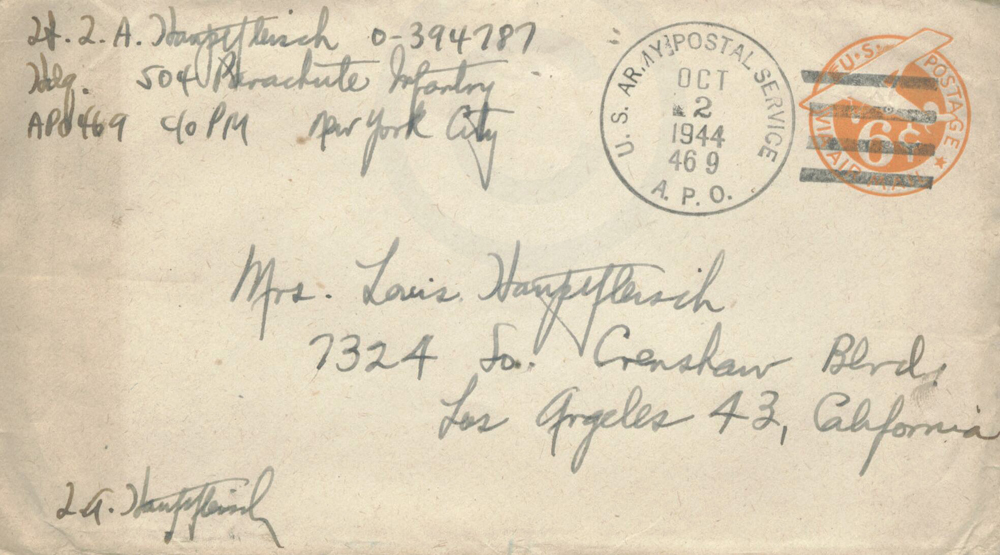 Lt. L. A. Hauptfleisch O-394787
Hdq. 504 Parachute Infantry
APO 469 c/o PM New York City
U. S. ARMY POSTAL SERVICE
OCT
2
1944
469
A. P. O.
U.S. POSTAGE
6¢
VIA AIR MAIL
Mrs. Louis Hauptfleisch
7324 So. Crenshaw Blvd.
Los Angeles 43, California
L.A. Hauptfleisch